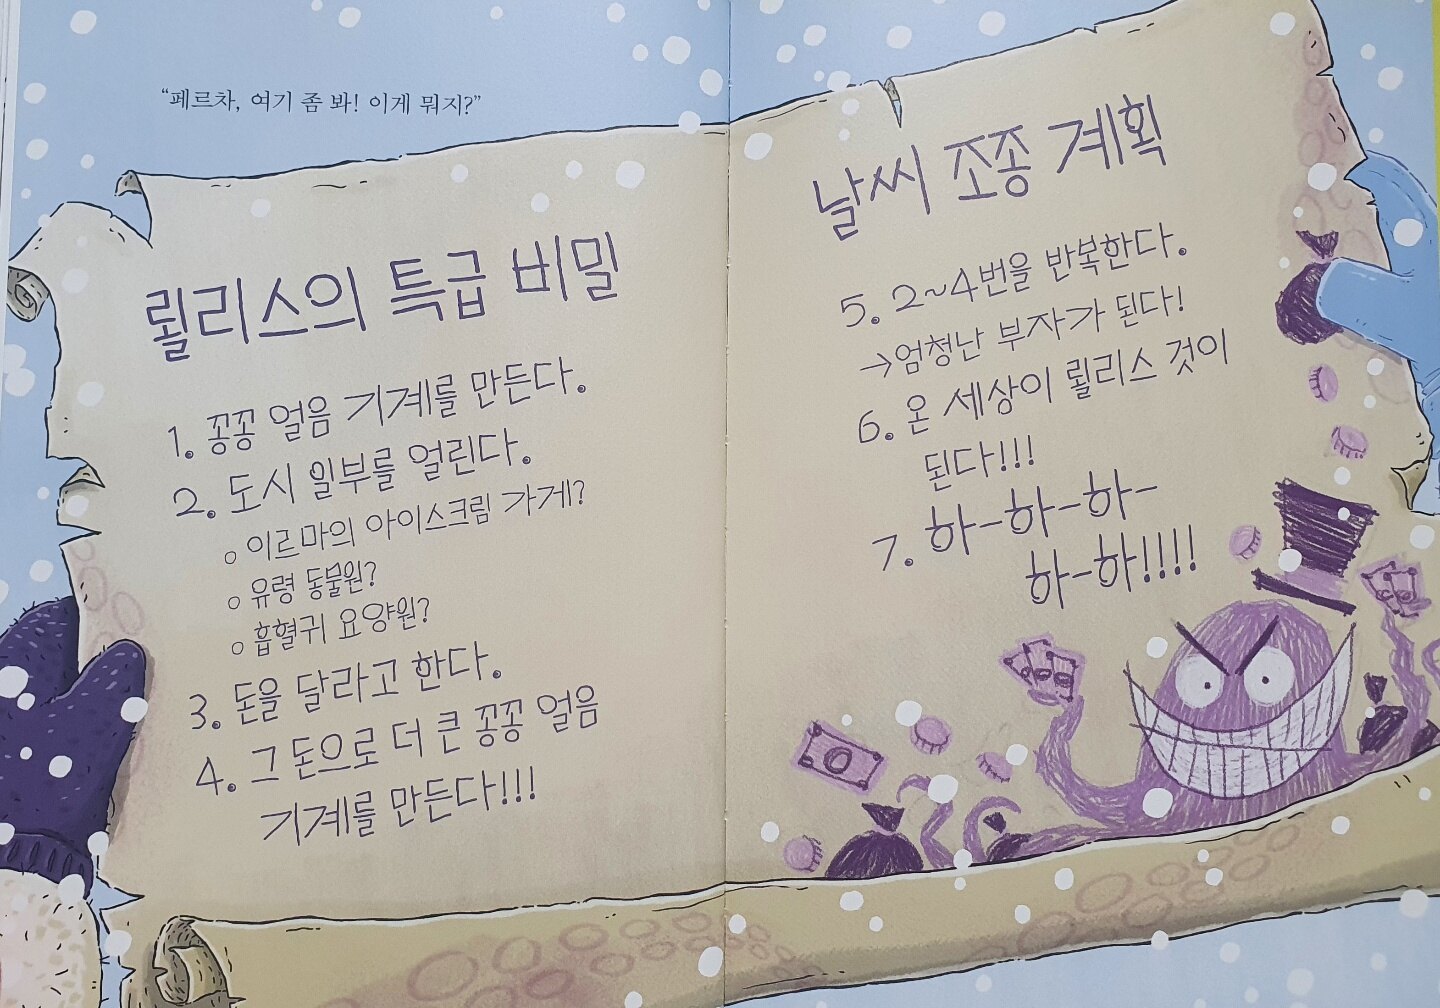 “페르차, 여기 좀 봐! 이게 뭐지?”
뢸리스의 특급 비밀
1. 꽁꽁 얼음 기계를 만든다.
2. 도시 일부를 얼린다.
○ 이르마의 아이스크림 가게?
○ 유령 동물원?
○ 흡혈귀 요양원?
3. 돈을 달라고 한다.
4. 그 돈으로 더 큰 꽁꽁 얼음
기계를 만든다!!!
날씨 조종 계획
5. 2~4번을 반복한다.
→엄청난 부자가 된다!
6. 온 세상이 뢸리스 것이
된다!!!
7. 하-하-하-
하-하!!!!